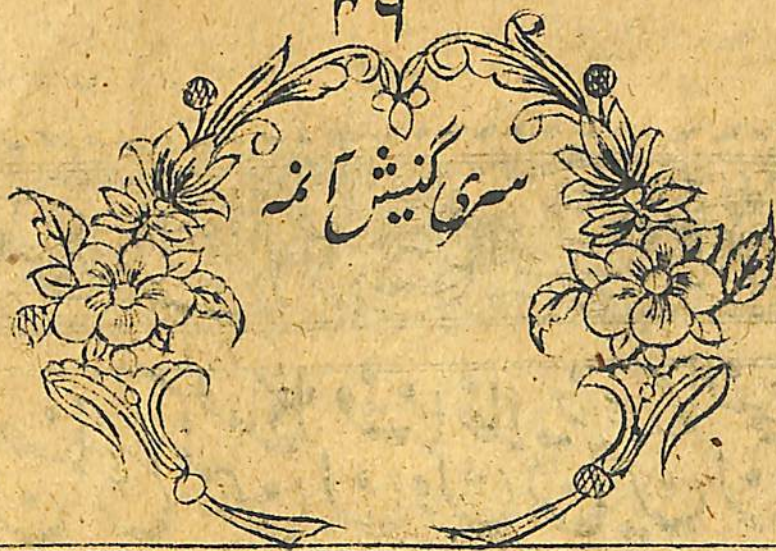 ۴۶
سری گنیش آنمہ